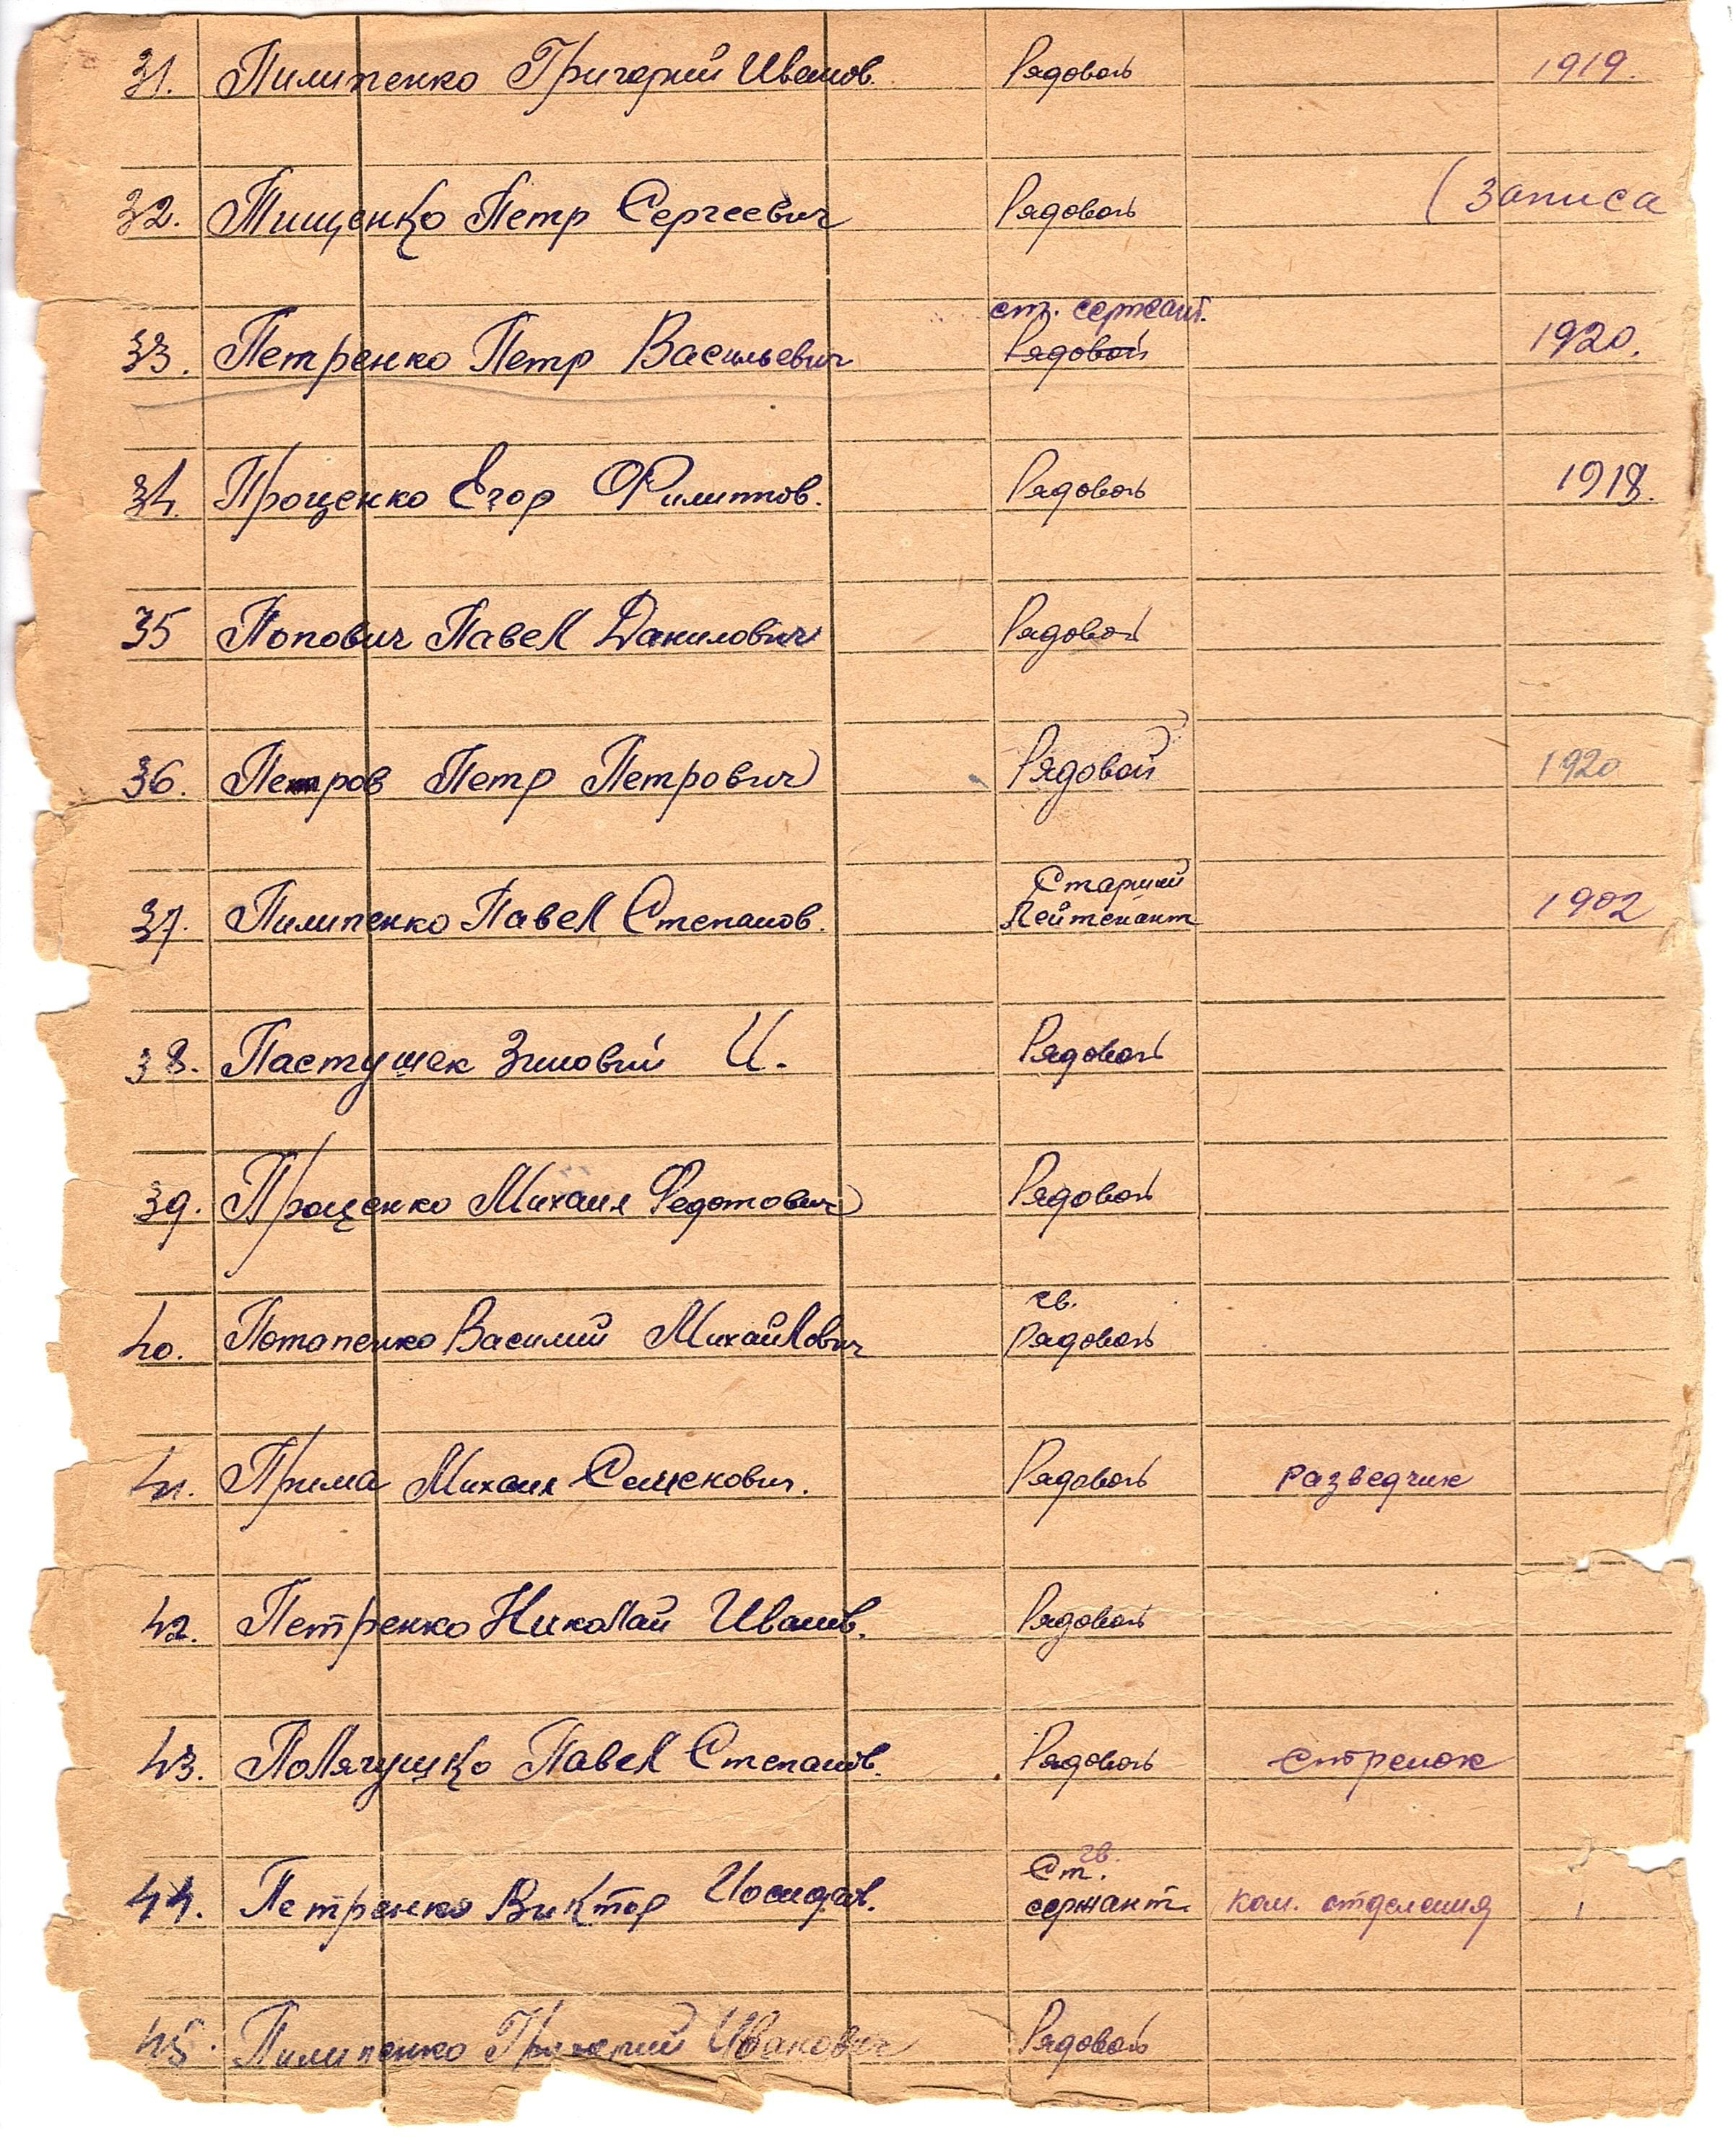 31. Пилипенко Григорий Иванов. Рядовой 1919.
32. Тищенко Петр Сергеевич Рядовой (Записа
ст. сержант.
33. Петренко Петр Васильевич Рядовой 1920.
34. Проценко Егор Филиппов. Рядовой 1918.
35 Попович Павел Данилович Рядовой
36. Петров Петр Петрович Рядовой 1920
Старший
37. Пилипенко Павел Степанов. Лейтенант 1902
38. Пастушек Зиновий И. Рядовой
39. Проценко Михаил Федотович Рядовой
гв.
40. Потапенко Василий Михайлович рядовой
41. Прима Михаил Семенович. Рядовой разведчик
42. Петренко Николай Иванов. Рядовой
43. Полячушко Павел Степанов. Рядовой стрелок
гв.
Ст.
44. Петренко Виктор Иосифов. сержант ком. отделения
45. Пилипенко Григорий Иванович Рядовой